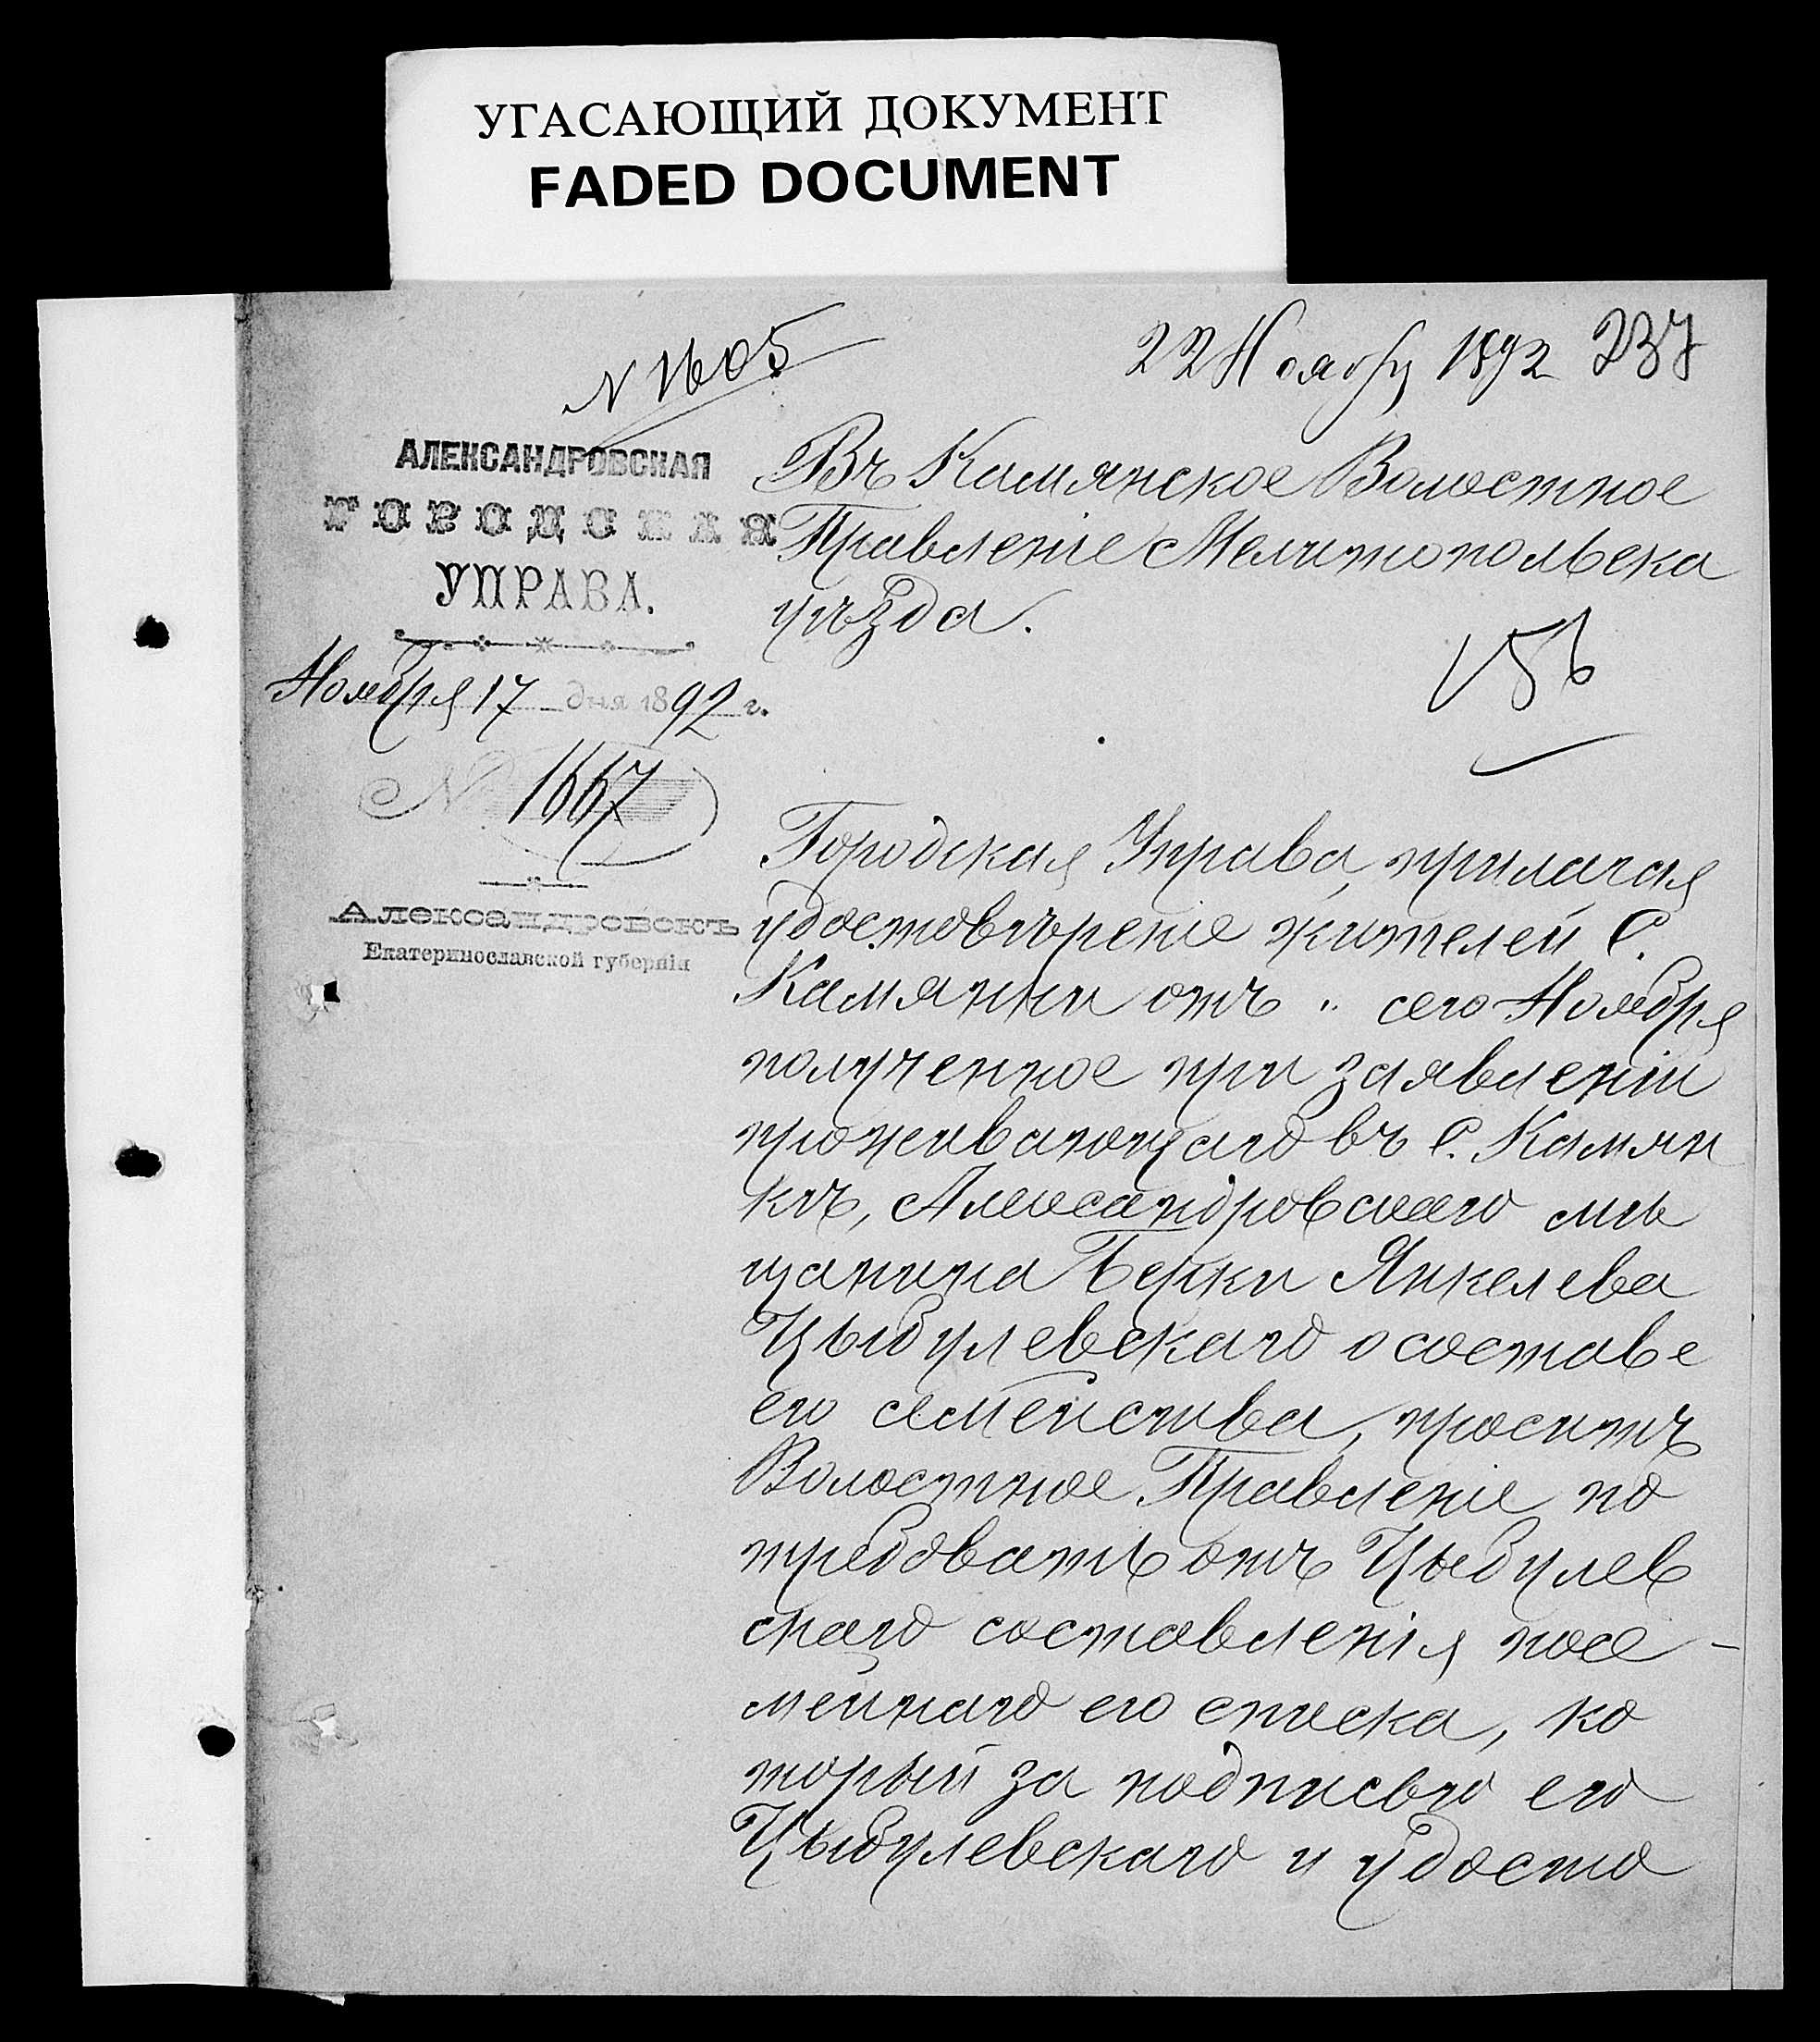 УГАСАЮЩИЙ ДОКУМЕНТ
FADED DOCUMENT
N 1605
22 Ноября 1892
237
АЛЕКСАНДРОВСКАЯ
ГОРОДСКАЯ
УПРАВА.
Ноября 17 дня 1892 г.
№ 1667
Александровскъ
Екатеринославской губерніи
Въ Камянское Волостное
Правленіе Мелитопольска
уѣзда.
Городская Управа, прилагая
удостовѣреніе жителей С.
Камянки отъ " сего Ноября
полученное при заявленіи
проживающаго въ С. Камян
кѣ, Александровскаго мѣ
щанина Берки Янкелева
Цыбулевскаго о составе
его семейства, проситъ
Волостное Правленіе по
требовать отъ Цыбулев
скаго составленія посе-
мейнаго его списка, ко
торый за подписью его
Цыбулевскаго и удосто